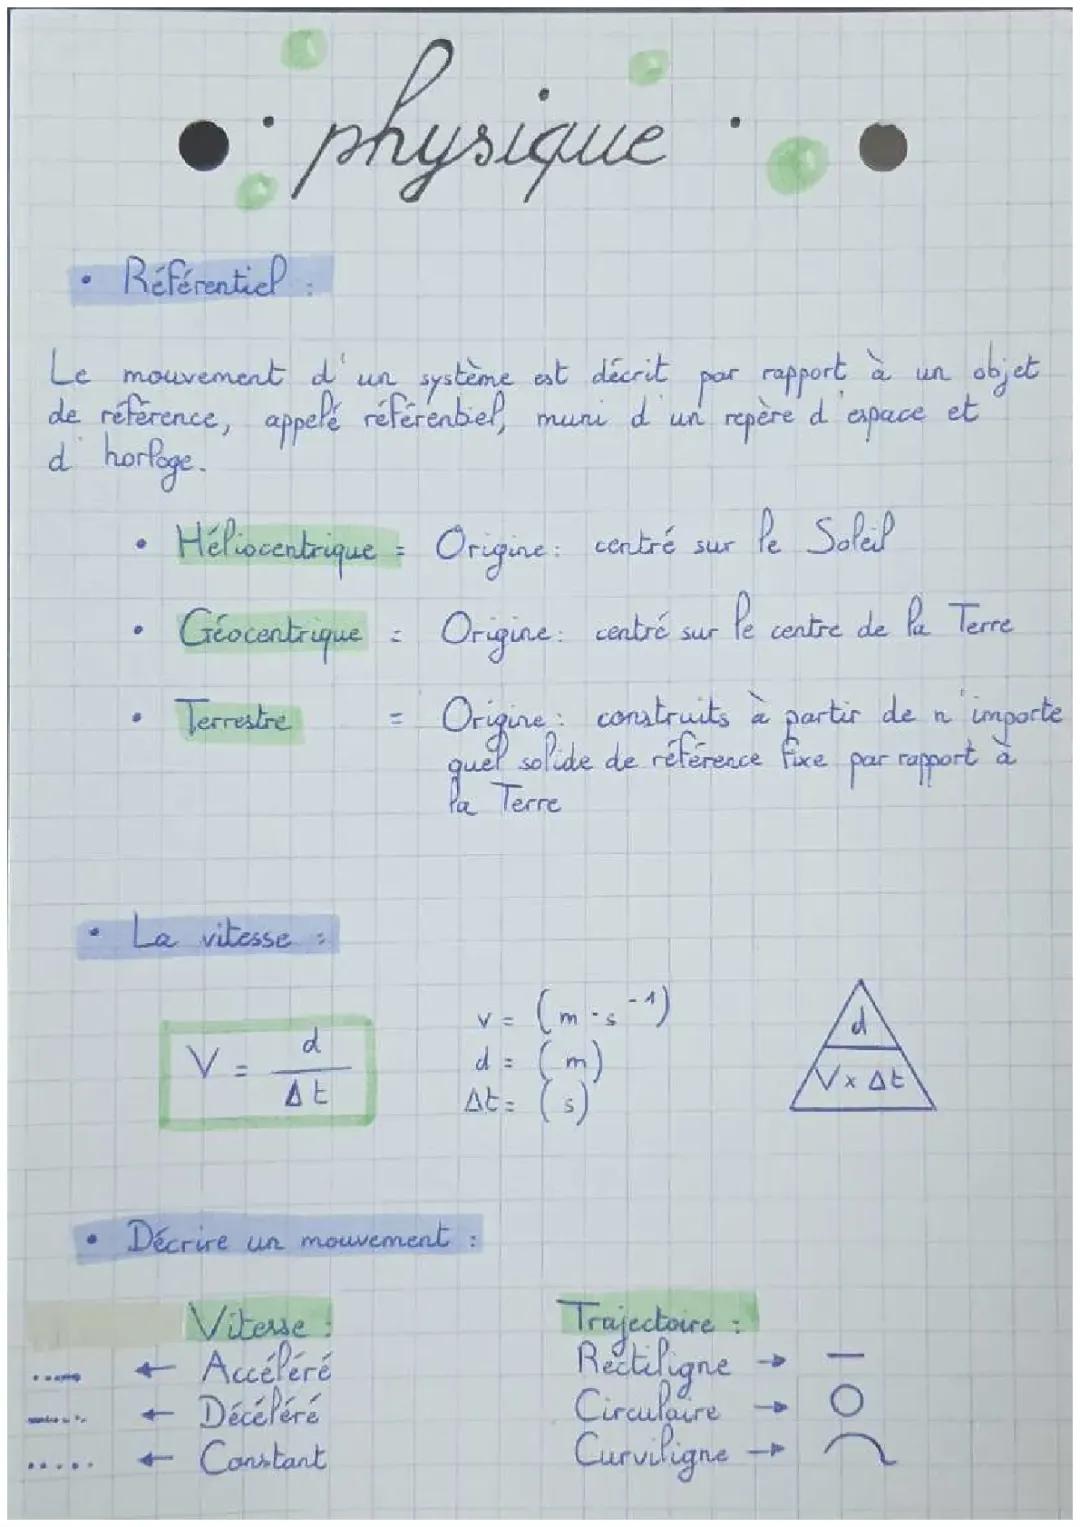 physique
• Référentiel :
Le mouvement d'un système est décrit par rapport à un objet
de référence, appelé référentiel, muni d'un repère d'espace et
d'horloge.
• Héliocentrique = Origine : centré sur le Soleil
• Géocentrique = Origine : centré sur le centre de la Terre
• Terrestre = Origine : construits à partir de n'importe
quel solide de référence fixe par rapport à
la Terre
• La vitesse :
V = d / Δt
v = (m·s⁻¹)
d = (m)
Δt = (s)
d
V x Δt
• Décrire un mouvement :
Vitesse :
← Accéléré
← Décéléré
← Constant
Trajectoire :
Rectiligne →
Circulaire →
Curviligne →